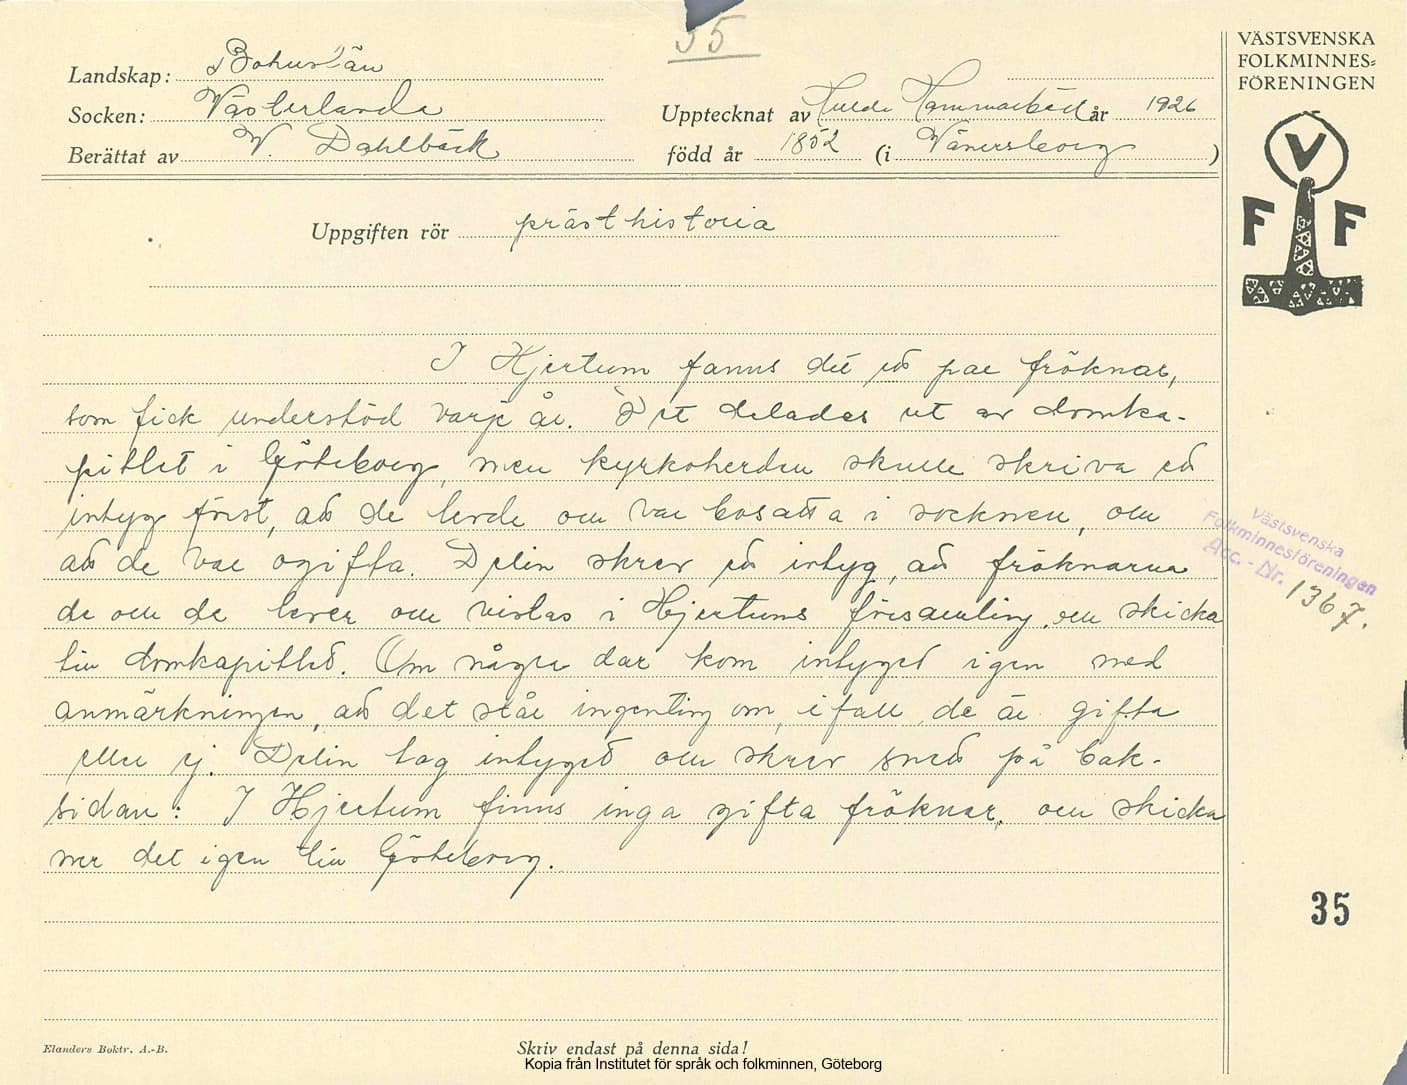 35
VÄSTSVENSKA
FOLKMINNES=
FÖRENINGEN
V
F F
Landskap: Bohuslän
Socken: Västerlanda Upptecknat av Hulda Hammarbäck år 1926
Berättat av W. Dahlbäck född år 1852 (i Vänersborg)
Uppgiften rör prästhistoria
I Hjertum fanns det ett par fröknar,
som fick understöd varje år. Det delades ut av domka-
pitlet i Göteborg, men kyrkoherden skulle skriva ett
intyg först, att de levde om var bosatta i socknen, om
att de var ogifta. Delin skrev ett intyg, att fröknarna
de om de lever om vistas i Hjertums församling, om skicka
till domkapitlet. Om några dar kom intyget igen med
anmärkningen, att det står ingenting om, ifall de är gifta
eller ej. Delin tog intyget om skrev snett på bak-
sidan: I Hjertum finns inga gifta fröknar, om skicka
ner det igen till Göteborg.
Västsvenska
Folkminnesföreningen
Acc. - Nr. 1367.
35
Elanders Boktr. A.-B.
Skriv endast på denna sida!
Kopia från Institutet för språk och folkminnen, Göteborg